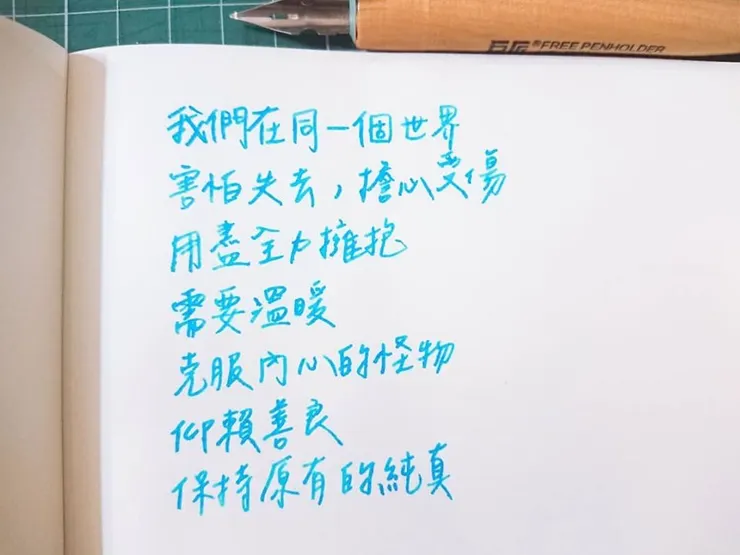 巨匠®FREE PENHOLDER
我們在同一個世界
害怕失去，擔心受傷
用盡全力擁抱
需要溫暖
克服內心的怪物
仰賴善良
保持原有的純真